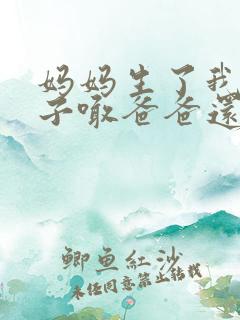 妈妈生了我
子嗷爸爸還
鲫鱼紅沙
未经同意禁止转载